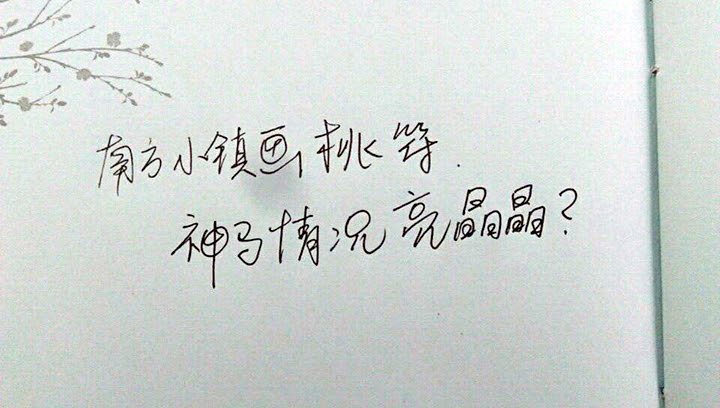 南方小镇画桃符.
神马情况亮晶晶?